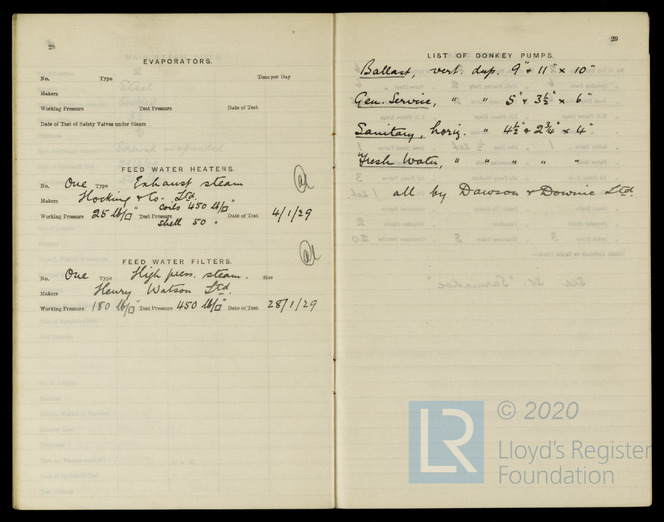 28
EVAPORATORS.
No. Type Tons per Day
Makers
Working Pressure Test Pressure Date of Test
Date of Test of Safety Valves under Steam
FEED WATER HEATERS.
No. One Type Exhaust steam
Makers Hocking & Co. Ltd.
Working Pressure 25 lb/□" Test Pressure Coils 450 lb/□" Date of Test 4/1/29
Shell 50 "
FEED WATER FILTERS.
No. One Type High pres. steam. Size
Makers Henry Watson Ltd.
Working Pressure 180 lb/□" Test Pressure 450 lb/□" Date of Test 28/1/29
29
LIST OF DONKEY PUMPS.
Ballast, vert. dup. 9" & 11" x 10"
Gen. Service, " " 5" & 3½" x 6"
Sanitary, horiz. " 4½" & 2¾" x 4"
Fresh Water, " " " " "
all by Dawson & Downie Ltd.
LR © 2020
Lloyd's Register
Foundation